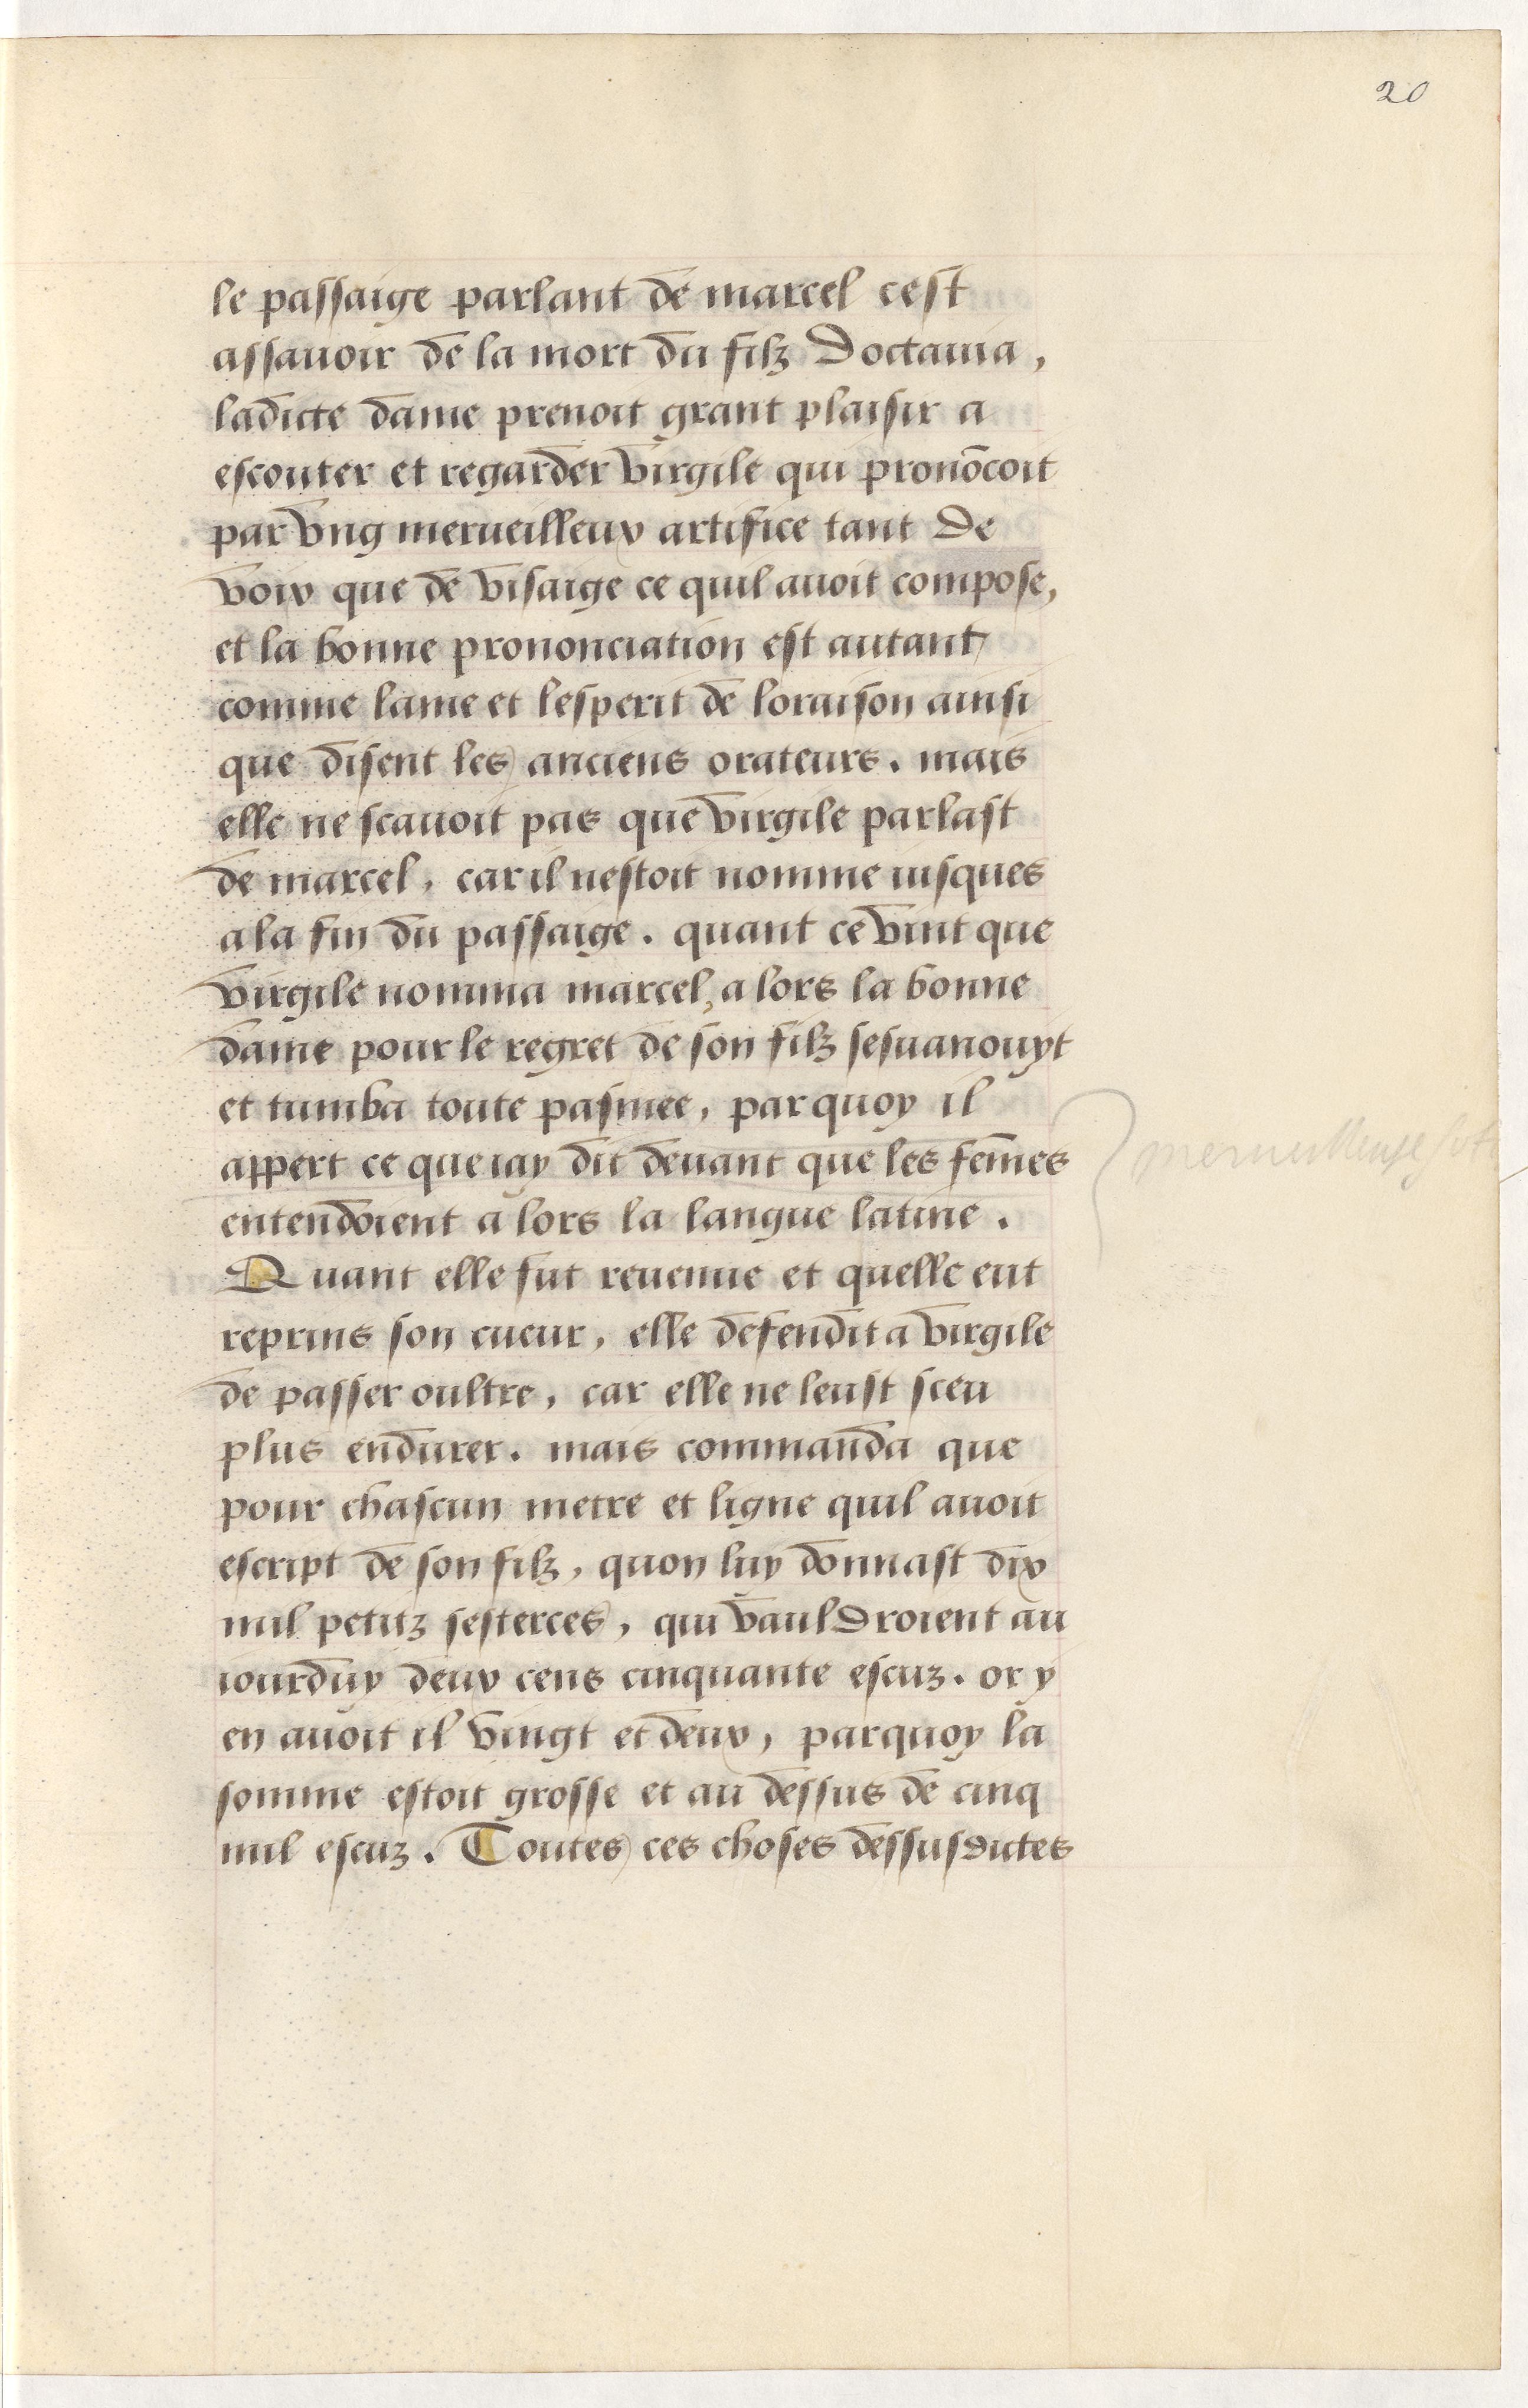 20
le passaige parlant de marcel cest
assauoir de la mort du filz Doctauia,
ladicte dame prenoit grant plaisir a
escouter et regarder virgile qui pronōcoit
par vng merueilleux artifice tant de
voix que de visaige ce quil auoit compose,
et la bonne prononciation est autant
comme lame et lesperit de loraison ainsi
que disent les anciens orateurs. mais
elle ne scauoit pas que virgile parlast
de marcel, car il nestoit nomme iusques
a la fin du passaige. quant ce vint que
virgile nomma marcel, a lors la bonne
dame pour le regret de son filz sesuanouyt
et tumba toute pasmee, par quoy il
appert ce que iay dit deuant que les fem̄es
entendoient a lors la langue latine.
Quant elle fut reuenue et quelle eut
reprins son cueur, elle defendit a virgile
de passer oultre, car elle ne leust sceu
plus endurer. mais commanda que
pour chascun metre et ligne quil auoit
escript de son filz, quon luy donnast dix
mil petitz sesterces, qui vauldroient au
iourduy deux cens cinquante escuz. or y
en auoit il vingt et deux, parquoy la
somme estoit grosse et au dessus de cinq
mil escuz. Toutes ces choses dessusdictes